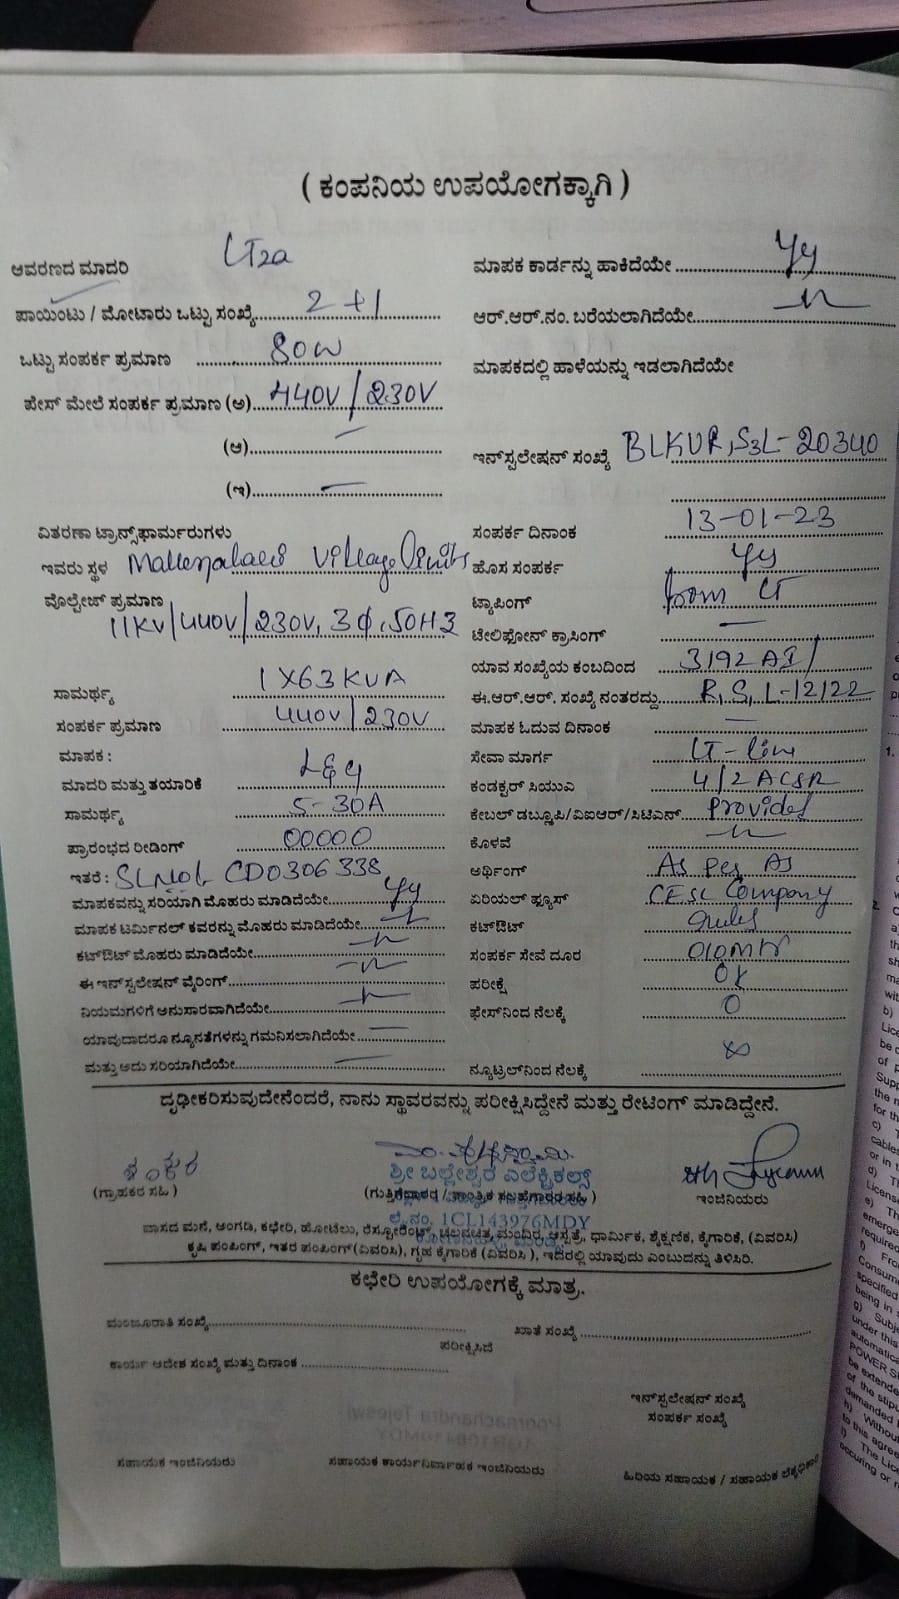 ( ಕಂಪನಿಯ ಉಪಯೋಗಕ್ಕಾಗಿ )
ಆವರಣದ ಮಾದರಿ LT2a
ಪಾಯಿಂಟು / ಮೋಟಾರು ಒಟ್ಟು ಸಂಖ್ಯೆ 2+1
ಒಟ್ಟು ಸಂಪರ್ಕ ಪ್ರಮಾಣ 80W
ಪೇಸ್ ಮೇಲೆ ಸಂಪರ್ಕ ಪ್ರಮಾಣ (ಅ) 440V/230V
(ಆ) —
(ಇ) —
ವಿತರಣಾ ಟ್ರಾನ್ಸ್‌ಫಾರ್ಮರುಗಳು
ಇವರು ಸ್ಥಳ Village limits
ವೊಲ್ಟೇಜ್ ಪ್ರಮಾಣ
11KV/440V/230V, 3Φ, 50HZ
ಸಾಮರ್ಥ್ಯ 1X63 KVA
ಸಂಪರ್ಕ ಪ್ರಮಾಣ 440V/230V
ಮಾಪಕ :
ಮಾದರಿ ಮತ್ತು ತಯಾರಿಕೆ
ಸಾಮರ್ಥ್ಯ 5-30A
ಪ್ರಾರಂಭದ ರೀಡಿಂಗ್ 00000
ಇತರೆ : CD0306338
ಮಾಪಕವನ್ನು ಸರಿಯಾಗಿ ಮೊಹರು ಮಾಡಿದೆಯೇ
ಮಾಪಕ ಟರ್ಮಿನಲ್ ಕವರನ್ನು ಮೊಹರು ಮಾಡಿದೆಯೇ
ಕಟ್‌ಔಟ್ ಮೊಹರು ಮಾಡಿದೆಯೇ
ಈ ಇನ್‌ಸ್ಟಲೇಷನ್ ವೈರಿಂಗ್
ನಿಯಮಗಳಿಗೆ ಅನುಸಾರವಾಗಿದೆಯೇ
ಯಾವುದಾದರೂ ನ್ಯೂನತೆಗಳನ್ನು ಗಮನಿಸಲಾಗಿದೆಯೇ —
ಮತ್ತು ಅದು ಸರಿಯಾಗಿದೆಯೇ —
ಮಾಪಕ ಕಾರ್ಡನ್ನು ಹಾಕಿದೆಯೇ
ಆರ್.ಆರ್.ನಂ. ಬರೆಯಲಾಗಿದೆಯೇ
ಮಾಪಕದಲ್ಲಿ ಹಾಳೆಯನ್ನು ಇಡಲಾಗಿದೆಯೇ
ಇನ್‌ಸ್ಟಲೇಷನ್ ಸಂಖ್ಯೆ BLKUR, S3L-20340
ಸಂಪರ್ಕ ದಿನಾಂಕ 13-01-23
ಹೊಸ ಸಂಪರ್ಕ
ಟ್ಯಾಪಿಂಗ್ from LT
ಟೇಲಿಫೋನ್ ಕ್ರಾಸಿಂಗ್ —
ಯಾವ ಸಂಖ್ಯೆಯ ಕಂಬದಿಂದ
ಈ.ಆರ್.ಆರ್. ಸಂಖ್ಯೆ ನಂತರದ್ದು
ಮಾಪಕ ಓದುವ ದಿನಾಂಕ —
ಸೇವಾ ಮಾರ್ಗ LT-line
ಕಂಡಕ್ಟರ್ ಸಿಯುಎ 4/2 ACSR
ಕೇಬಲ್ ಡಬ್ಲೂಪಿ/ವಿಐಆರ್/ಸಿಟಿಎನ್
ಕೊಳವೆ
ಅರ್ಥಿಂಗ್ As per
ಏರಿಯಲ್ ಫ್ಯೂಸ್ CESC Company
ಕಟ್‌ಔಟ್ rules
ಸಂಪರ್ಕ ಸೇವೆ ದೂರ
ಪರೀಕ್ಷೆ OK
ಫೇಸ್‌ನಿಂದ ನೆಲಕ್ಕೆ 0
ನ್ಯೂಟ್ರಲ್‌ನಿಂದ ನೆಲಕ್ಕೆ ∞
ದೃಢೀಕರಿಸುವುದೇನೆಂದರೆ, ನಾನು ಸ್ಥಾವರವನ್ನು ಪರೀಕ್ಷಿಸಿದ್ದೇನೆ ಮತ್ತು ರೇಟಿಂಗ್ ಮಾಡಿದ್ದೇನೆ.
ಶಂಕರ
ಶ್ರೀ ಬಲ್ಲೇಶ್ವರ ಎಲೆಕ್ಟ್ರಿಕಲ್ಸ್
(ಗ್ರಾಹಕರ ಸಹಿ) (ಗುತ್ತಿಗೆದಾರರ / ತಾಂತ್ರಿಕ ಸಲಹೆಗಾರರ ಸಹಿ) ಇಂಜಿನಿಯರು
ಲೈ.ನಂ. 1CL143976MDY
ವಾಸದ ಮನೆ, ಅಂಗಡಿ, ಕಛೇರಿ, ಹೋಟೆಲು, ರೆಸ್ಟೋರೆಂಟ್, ಚಲನಚಿತ್ರ ಮಂದಿರ, ಆಸ್ಪತ್ರೆ, ಧಾರ್ಮಿಕ, ಶೈಕ್ಷಣಿಕ, ಕೈಗಾರಿಕೆ, (ವಿವರಿಸಿ)
ಕೃಷಿ ಪಂಪಿಂಗ್, ಇತರ ಪಂಪಿಂಗ್ (ವಿವರಿಸಿ), ಗೃಹ ಕೈಗಾರಿಕೆ (ವಿವರಿಸಿ), ಇದರಲ್ಲಿ ಯಾವುದು ಎಂಬುದನ್ನು ತಿಳಿಸಿರಿ.
ಕಛೇರಿ ಉಪಯೋಗಕ್ಕೆ ಮಾತ್ರ.
ಮಂಜೂರಾತಿ ಸಂಖ್ಯೆ ಖಾತೆ ಸಂಖ್ಯೆ
ಪರೀಕ್ಷಿಸಿದೆ
ಕಾರ್ಯ ಆದೇಶ ಸಂಖ್ಯೆ ಮತ್ತು ದಿನಾಂಕ
ಇನ್‌ಸ್ಟಲೇಷನ್ ಸಂಖ್ಯೆ
ಸಂಪರ್ಕ ಸಂಖ್ಯೆ
ಸಹಾಯಕ ಇಂಜಿನಿಯರು ಸಹಾಯಕ ಕಾರ್ಯನಿರ್ವಾಹಕ ಇಂಜಿನಿಯರು ಹಿರಿಯ ಸಹಾಯಕ / ಸಹಾಯಕ ಲೆಕ್ಕಾಧಿಕಾರಿ